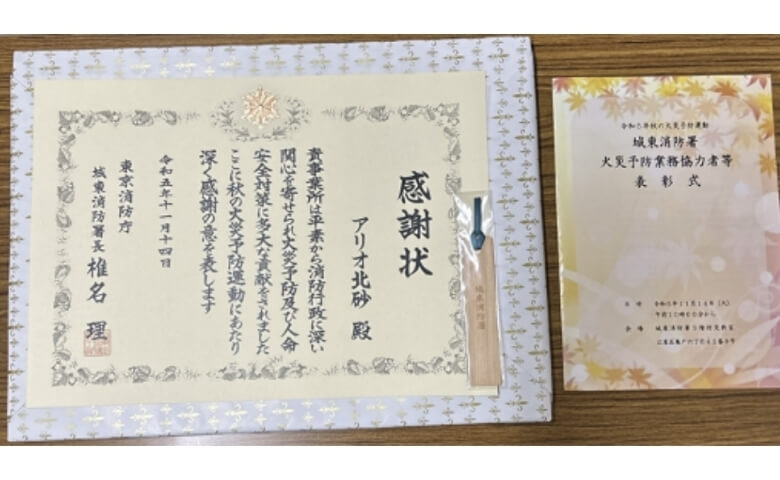 感謝状
アリオ北砂 殿
貴事業所は平素から消防行政に深い
関心を寄せられ火災予防及び人命
安全対策に多大な貢献をされました
ここに秋の火災予防運動にあたり
深く感謝の意を表します
令和五年十一月十四日
東京消防庁
城東消防署長 椎名 理
城東消防署
令和5年秋の火災予防運動
城東消防署
火災予防業務協力者等
表彰式
日 時 令和5年11月14日(火)
午前10時00分から
会 場